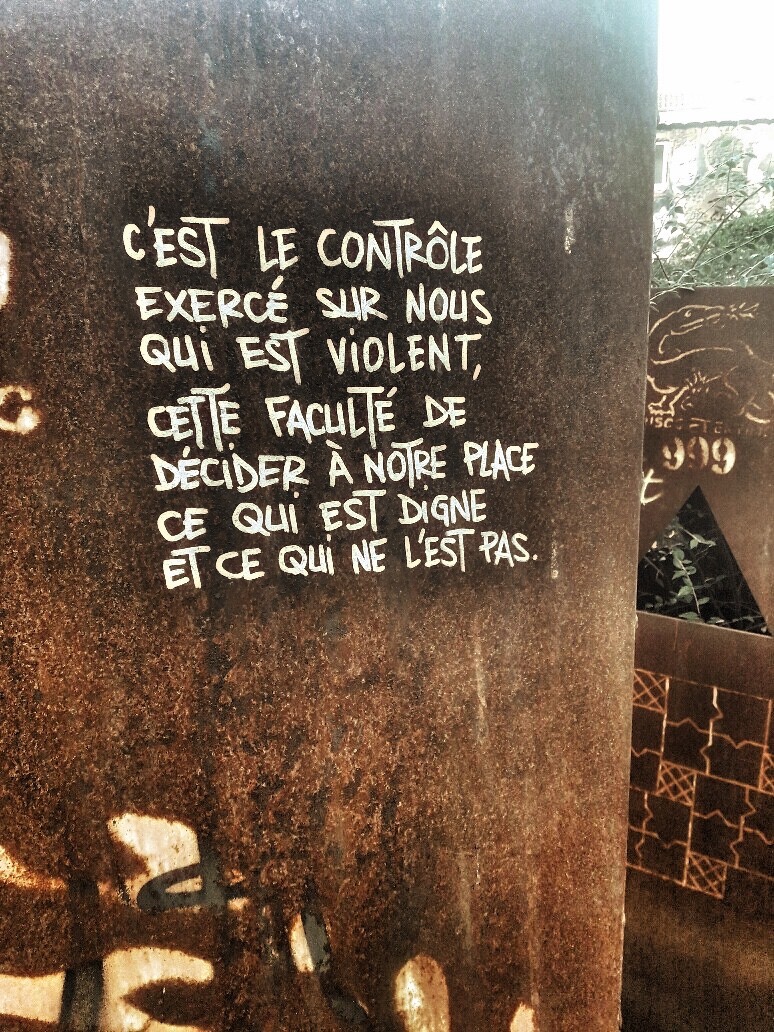 C'EST LE CONTRÔLE
EXERCÉ SUR NOUS
QUI EST VIOLENT,
CETTE FACULTÉ DE
DÉCIDER À NOTRE PLACE
CE QUI EST DIGNE
ET CE QUI NE L'EST PAS.
999